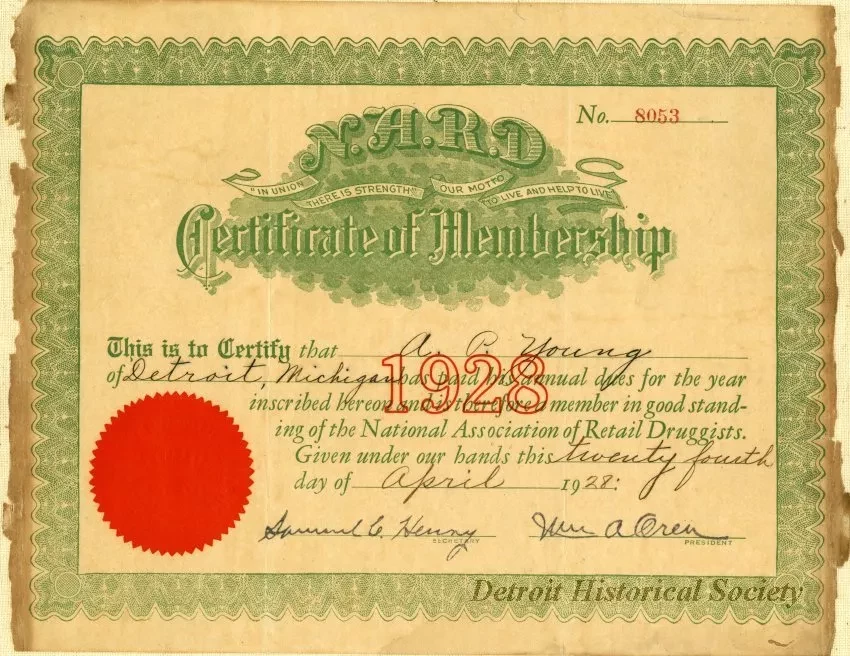 No. 8053
N.A.R.D
"IN UNION THERE IS STRENGTH" OUR MOTTO "TO LIVE AND HELP TO LIVE"
Certificate of Membership
This is to Certify that A. P. Young
of Detroit, Michigan has paid his annual dues for the year
1928
inscribed hereon and is therefore a member in good stand-
ing of the National Association of Retail Druggists.
Given under our hands this twenty fourth
day of April 1928:
Samuel C. Henry Wm A Oren
SECRETARY PRESIDENT
Detroit Historical Society